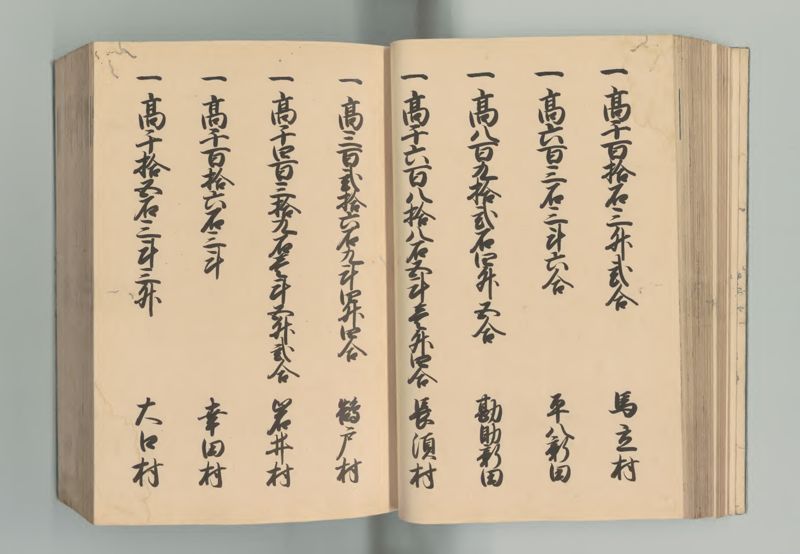 一高千百拾石三升弐合 馬立村
一高六百三石三斗六合 平八新田
一高八百九拾弐石四升五合 勘助新田
一高千六百八拾八石五斗壱升四合 長須村
一高三百弐拾六石九斗四升四合 鶴戸村
一高千四百三拾九石壱斗五升弐合 岩井村
一高千百拾六石三斗 幸田村
一高千拾五石三斗三升 大口村